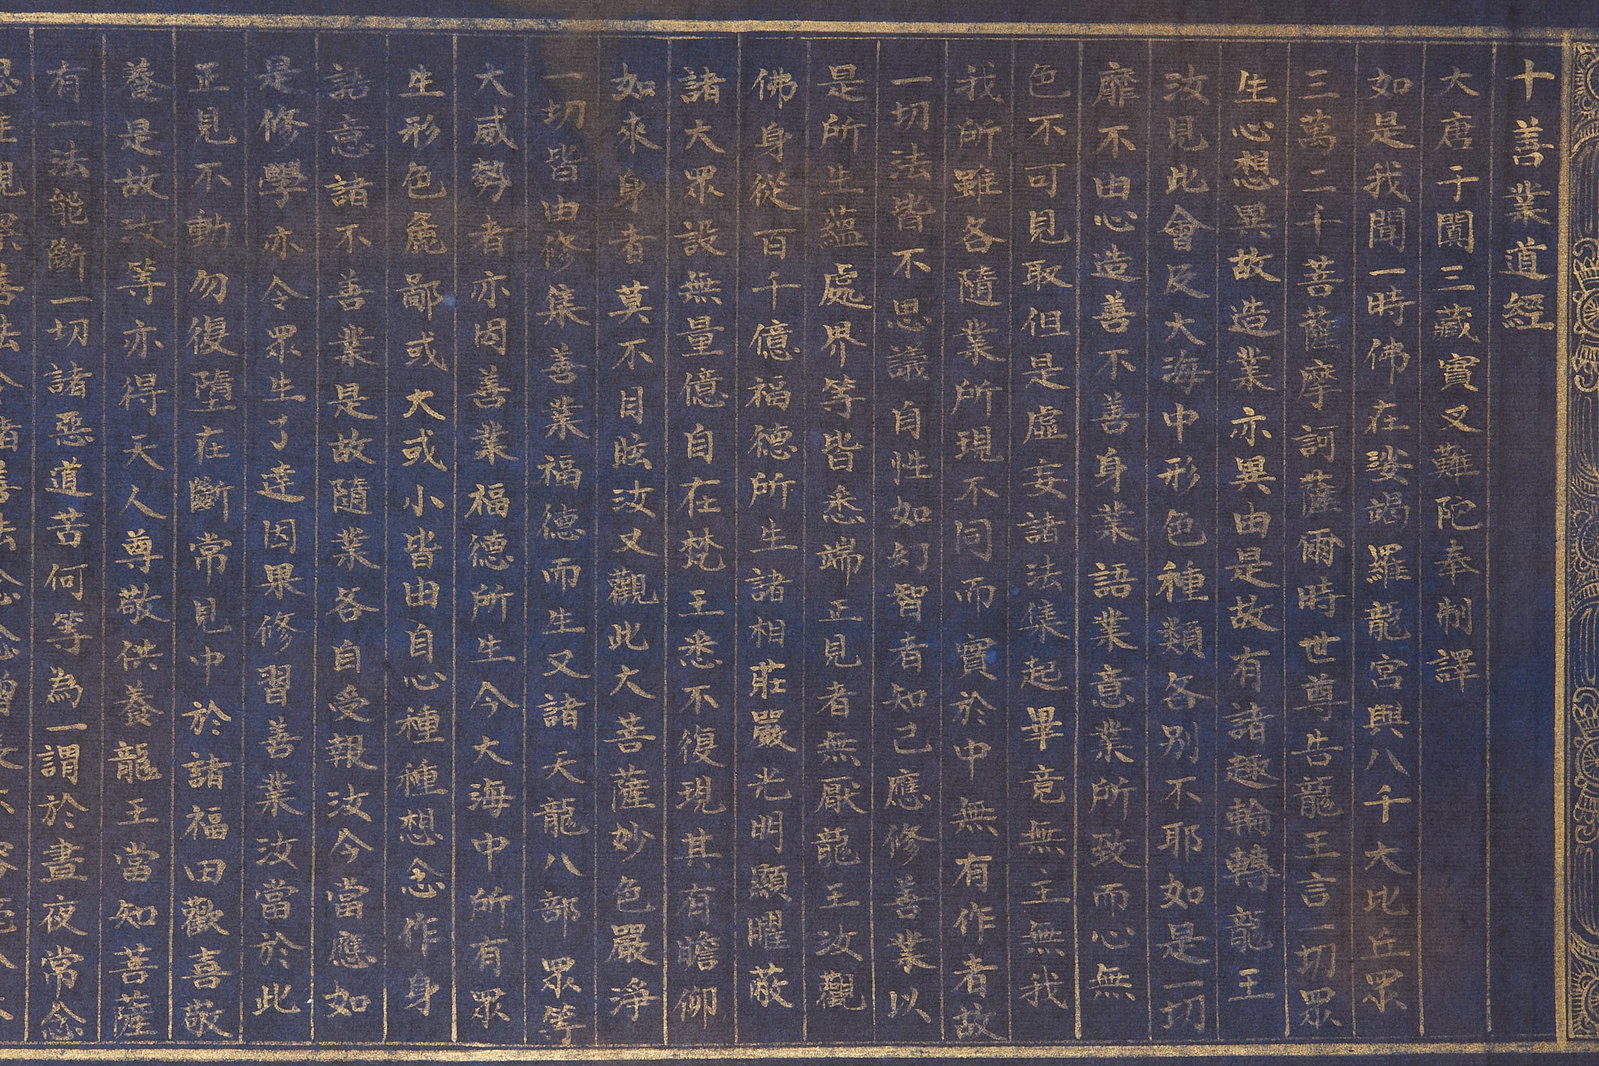 十善業道經
大唐于闐三藏實叉難陀奉制譯
如是我聞一時佛在娑竭羅龍宮與八千大比丘眾
三萬二千菩薩摩訶薩爾時世尊告龍王言一切眾
生心想異故造業亦異由是故有諸趣輪轉龍王
汝見此會及大海中形色種類各別不耶如是一切
靡不由心造善不善身業語業意業所致而心無
色不可見取但是虛妄諸法集起畢竟無主無我
我所雖各隨業所現不同而實於中無有作者故
一切法皆不思議自性如幻智者知已應修善業以
是所生蘊處界等皆悉端正見者無厭龍王汝觀
佛身從百千億福德所生諸相莊嚴光明顯曜蔽
諸大眾設無量億自在梵王悉不復現其有瞻仰
如來身者莫不目眩汝又觀此大菩薩妙色嚴淨
一切皆由修集善業福德而生又諸天龍八部眾等
大威勢者亦因善業福德所生今大海中所有眾
生形色麁鄙或大或小皆由自心種種想念作身
語意諸不善業是故隨業各自受報汝今當應如
是修學亦令眾生了達因果修習善業汝當於此
正見不動勿復墮在斷常見中於諸福田歡喜敬
養是故汝等亦得天人尊敬供養龍王當知菩薩
有一法能斷一切諸惡道苦何等為一謂於晝夜常念